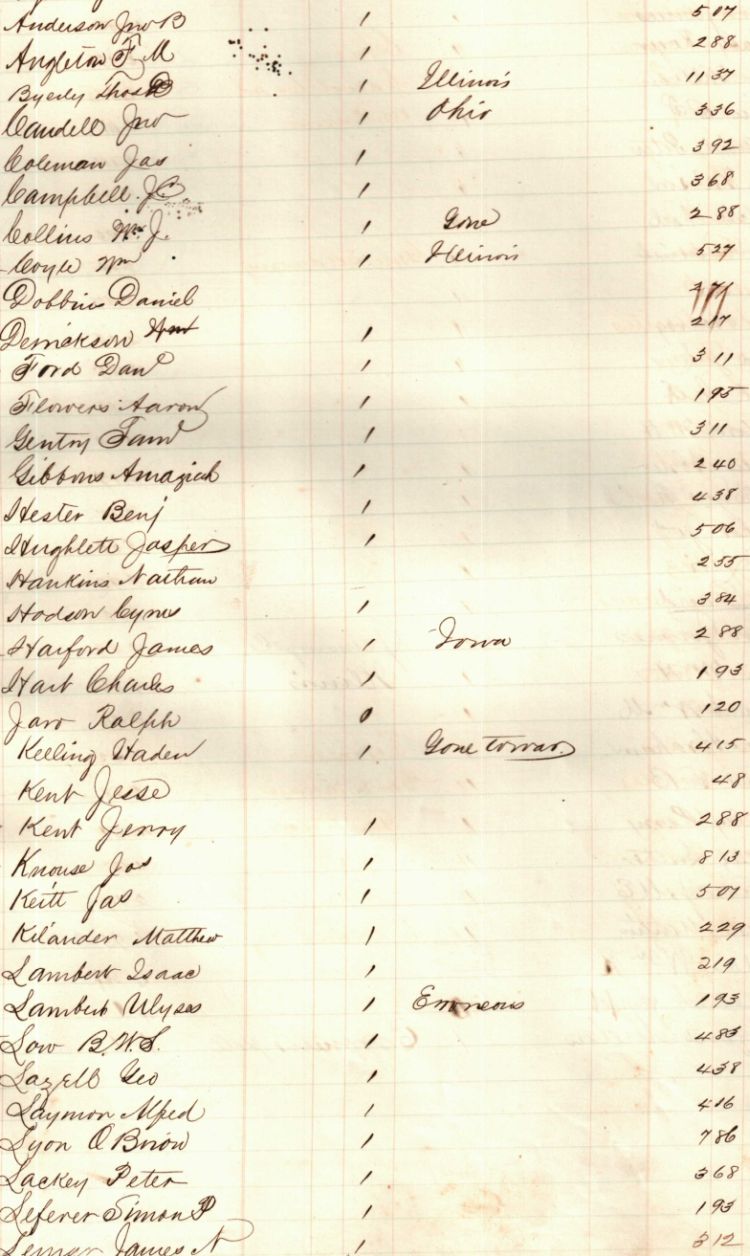 Anderson Jno B 1 507
Angleton F. M 1 288
Byerly Thos B 1 Illinois 1137
Caudell Jno 1 Ohio 336
Coleman Jas 1 392
Campbell J.C. 1 368
Collins Wm J. 1 Gone 288
Coyle Wm 1 Illinois 527
Dobbins Daniel
Derrickson Wm 1 217
Ford Danl 1 311
Flowers Aaron 1 195
Gentry Saml 1 311
Gibbons Amaziah 1 240
Hester Benj 1 438
Hughlett Jasper 1 506
Hankins Nathan 255
Hodson Cyrus 1 384
Harford James 1 Iowa 288
Hart Charles 1 193
Jarr Ralph 0 120
Kelling Haden 1 Gone to war. 415
Kent Jesse 48
Kent Jerry 1 288
Knouse Jos 1 813
Keitt Jas 1 507
Kilander Matthew 1 229
Lambert Isaac 1 219
Lambert Ulyses 1 Erroneous 193
Low B.W.S. 1 483
Lazell Geo 1 438
Laymon Alfred 1 416
Lyon O Brion 1 786
Lackey Peter 1 368
Leferer Simon P 1 193
James N 1 312